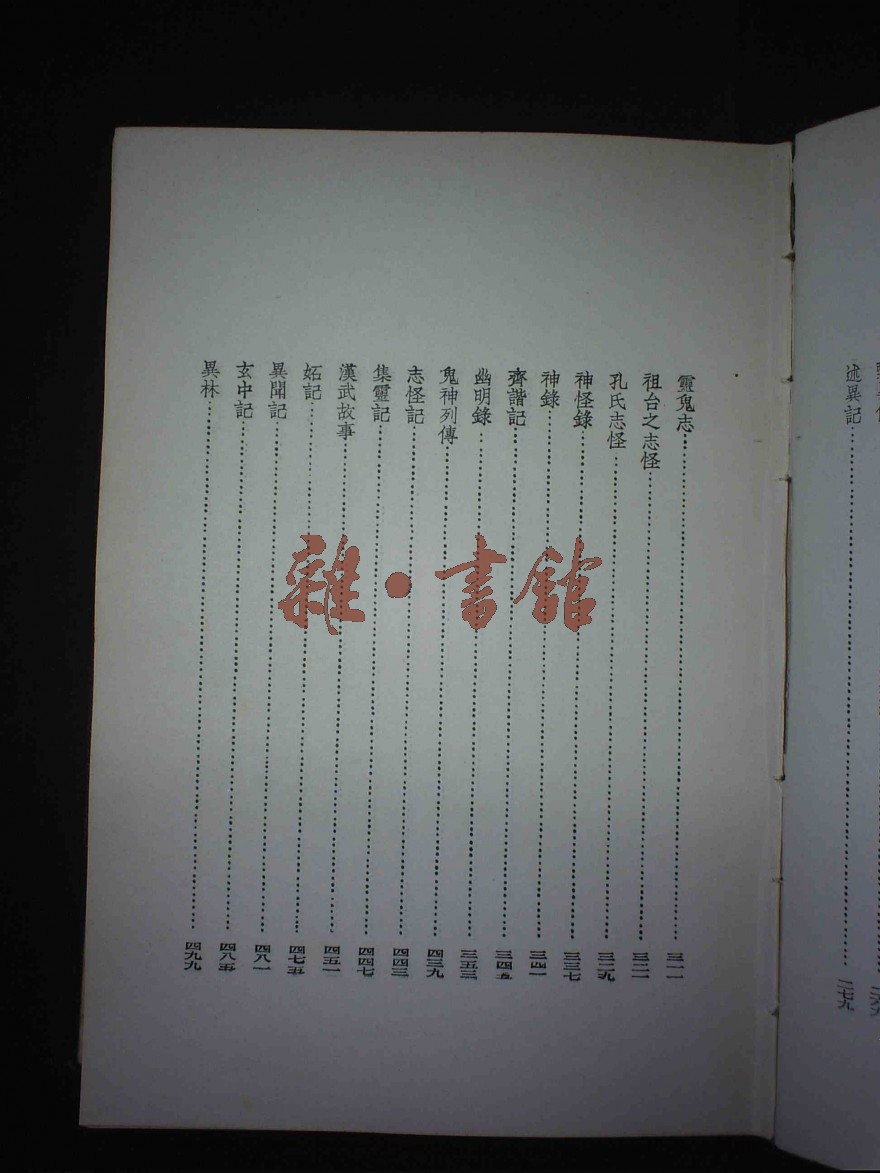 述異記……二七九
靈鬼志……三一一
祖台之志怪……三二一
孔氏志怪……三二九
神怪錄……三三七
神錄……三四一
齊諧記……三四五
幽明錄……三五三
鬼神列傳……四三九
志怪記……四四三
集靈記……四四七
漢武故事……四五一
妬記……四七五
異聞記……四八一
玄中記……四八五
異林……四九九
雜·書館